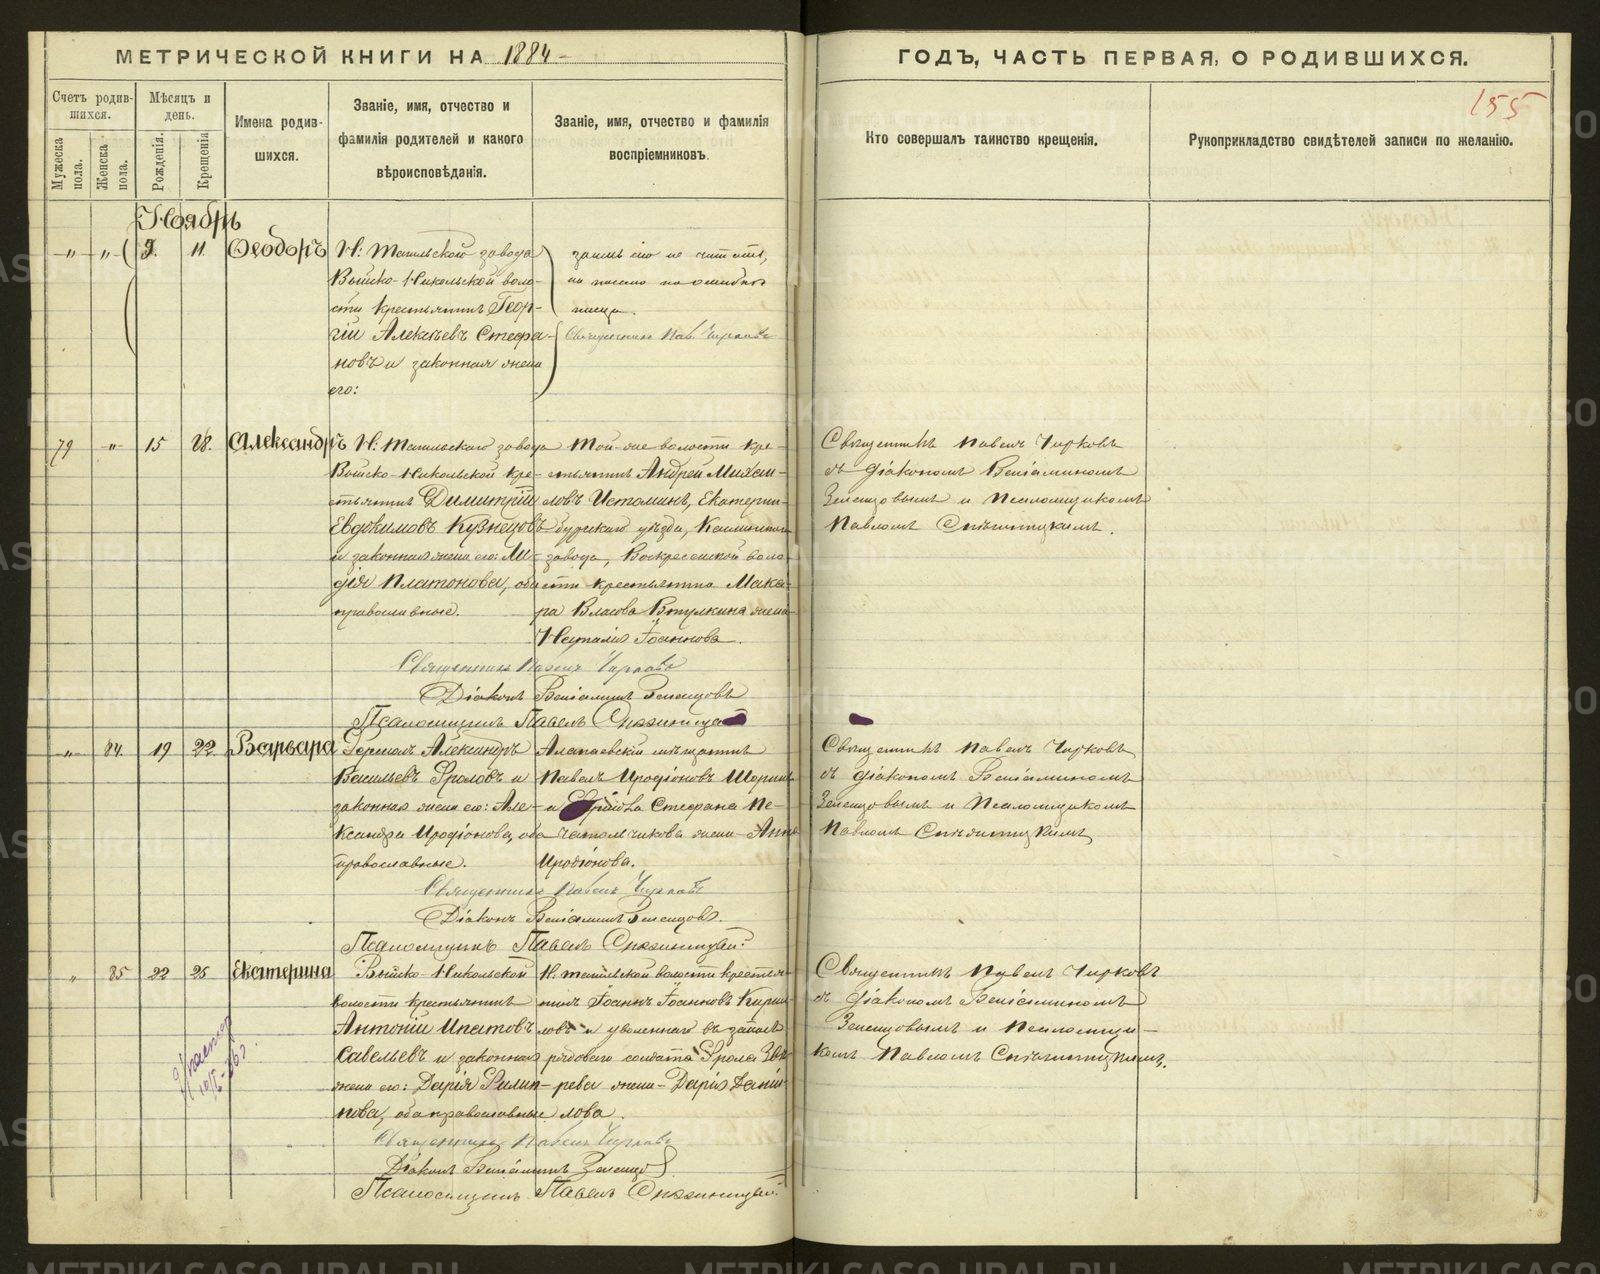 МЕТРИЧЕСКОЙ КНИГИ НА 1884
ГОДЪ, ЧАСТЬ ПЕРВАЯ, О РОДИВШИХСЯ.
155
Счетъ родившихся.
Мужеска пола.
Женска пола.
Мѣсяцъ и день.
Рожденія.
Крещенія
Имена родившихся.
Званіе, имя, отчество и фамилія родителей и какого вѣроисповѣданія.
Званіе, имя, отчество и фамилія воспріемниковъ.
Кто совершалъ таинство крещенія.
Рукоприкладство свидѣтелей записи по желанію.
Ноябрь
" " 9. 11. Ѳеодоръ
Н: Тагильской завода
Выйско-Никольской воло-
сти крестьянинъ Геор-
гій Алексѣевъ Стефа-
новъ и законная жена
его:
запись сію не считать,
писца.
Священникъ Пав. Чирковъ
79 " 15 18. Александръ
Н. Тагильскаго завода
Выйско-Никольской кре-
стьянинъ Димитрій
Евдокимовъ Кузнецовъ
и законная жена его: Ли-
дія Платонова, оба
православные.
Той-же волости кре-
стьянинъ Андрей Михаи-
ловъ Истоминъ, Екатерин-
бургскаго уѣзда,
завода, Воскресенской воло-
сти крестьянина Мака-
ра Власова Втулкина жена
Наталія Іоаннова.
Священникъ Павелъ Чирковъ
съ діакономъ Веніаминомъ
Зеленцовымъ и Псаломщикомъ
Павломъ
Священникъ Павелъ Чирковъ
Діаконъ Веніаминъ Зеленцовъ
Псаломщикъ Павелъ
" 84. 19 22. Варвара
Александръ
Васильевъ Фроловъ и
законная жена его: Але-
ксандра Иродіонова, оба
православные.
Алапаевскій мѣщанинъ
Павелъ Иродіоновъ
и Стефана Пе-
жена Анна
Иродіонова.
Священникъ Павелъ Чирковъ
съ діакономъ Веніаминомъ
Зеленцовымъ и Псаломщикомъ
Павломъ
Священникъ Павелъ Чирковъ
Діаконъ Веніаминъ Зеленцовъ.
Псаломщикъ Павелъ
" 85 22 25 Екатерина
Выйско-Никольской
волости крестьянинъ
Антоній Ипатовъ
Савельевъ и законная
жена его: Дарія Филип-
пова, оба православные
Н. тагильской волости крестья-
нинъ Іоаннъ Іоанновъ Кирил-
ловъ и уволеннаго въ запасъ
рядоваго солдата Фрола
жена Дарія Дани-
лова.
Священникъ Павелъ Чирковъ
съ діакономъ Веніаминомъ
Зеленцовымъ и Псаломщи-
комъ Павломъ
Священникъ Павелъ Чирковъ
Діаконъ Веніаминъ Зеленцовъ
Псаломщикъ Павелъ
METRIKI.GASO-URAL.RU